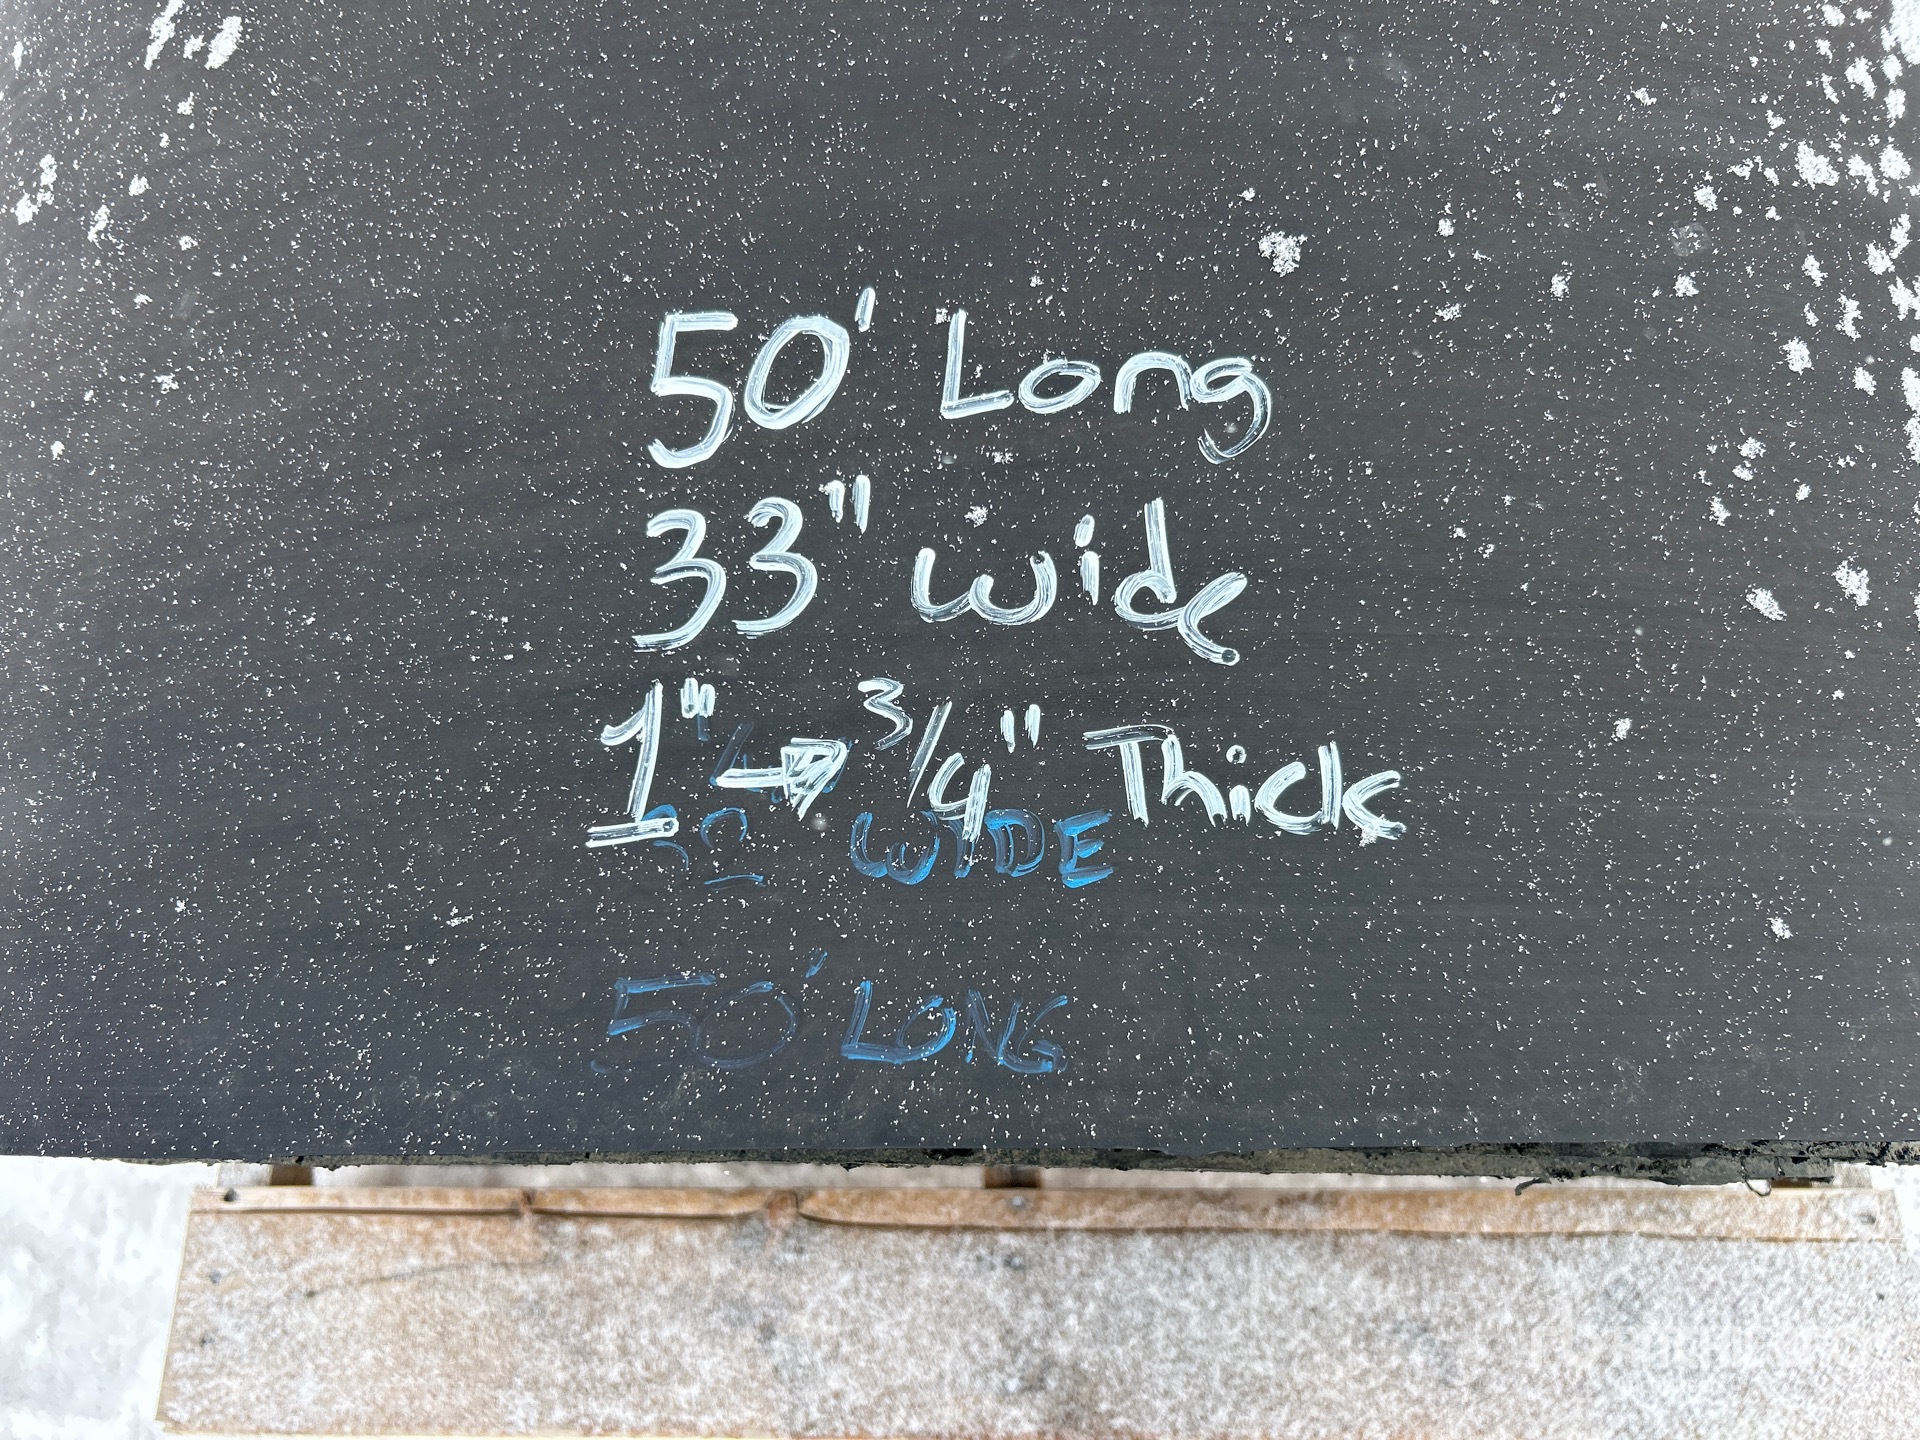 50' Long
33" wide
1" → 3/4" Thick
WIDE
50' LONG